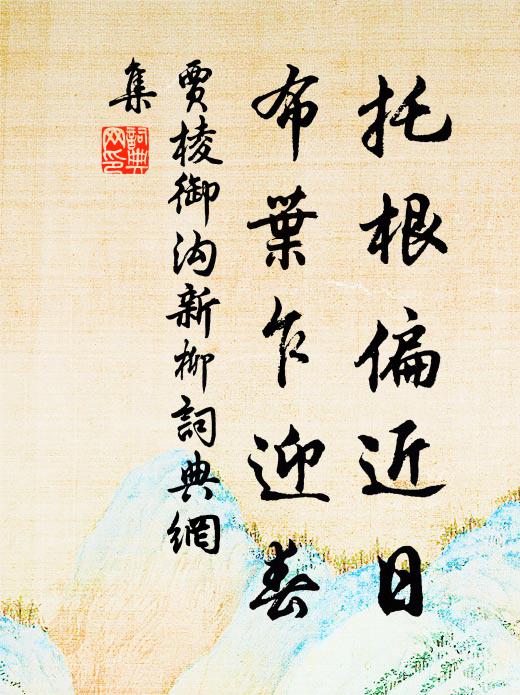 托根偏近日
布葉乍迎春
賈棱御沟新柳詞典網
集
詞典網印